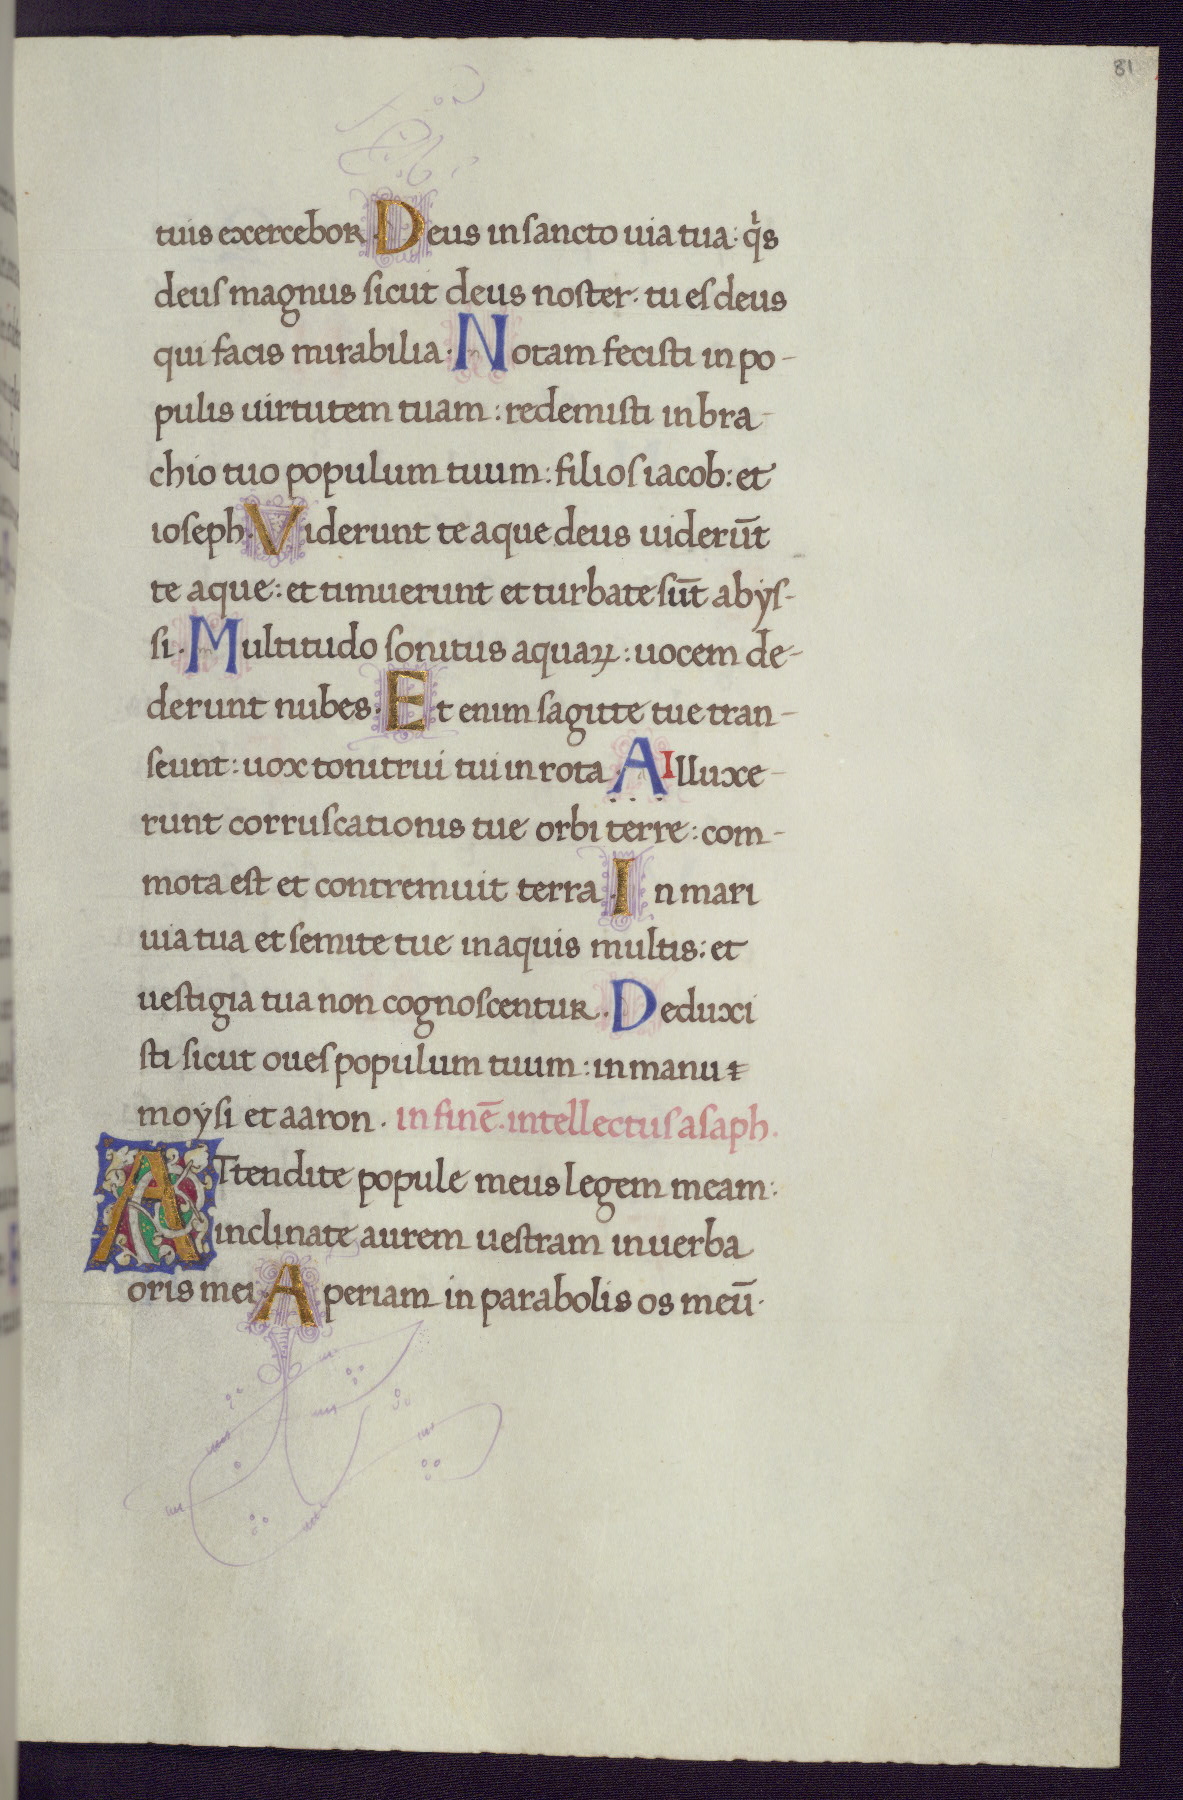 81
tuis exercebor. Deus in sancto uia tua: q̇s
deus magnus sicut deus noster. tu es deus
qui facis mirabilia: Notam fecisti in po-
pulis uirtutem tuam: redemisti in bra-
chio tuo populum tuum: filios iacob: et
ioseph. Viderunt te aque deus uiderūt
te aque: et timuerunt et turbate sūt abẏs-
si. Multitudo sonitus aquaꝝ: uocem de-
derunt nubes. Et enim sagitte tue tran-
seunt: uox tonitrui tui in rota. AIlluxe-
runt corruscationis tue orbi terre: com-
mota est et contremuit terra. In mari
uia tua et semite tue in aquis multis: et
uestigia tua non cognoscentur. Deduxi
sti sicut oues populum tuum: in manu
moẏsi et aaron. in finē. intellectus asaph.
ATtendite popule meus legem meam:
inclinate aurem uestram in uerba
oris mei. Aperiam in parabolis os meū.